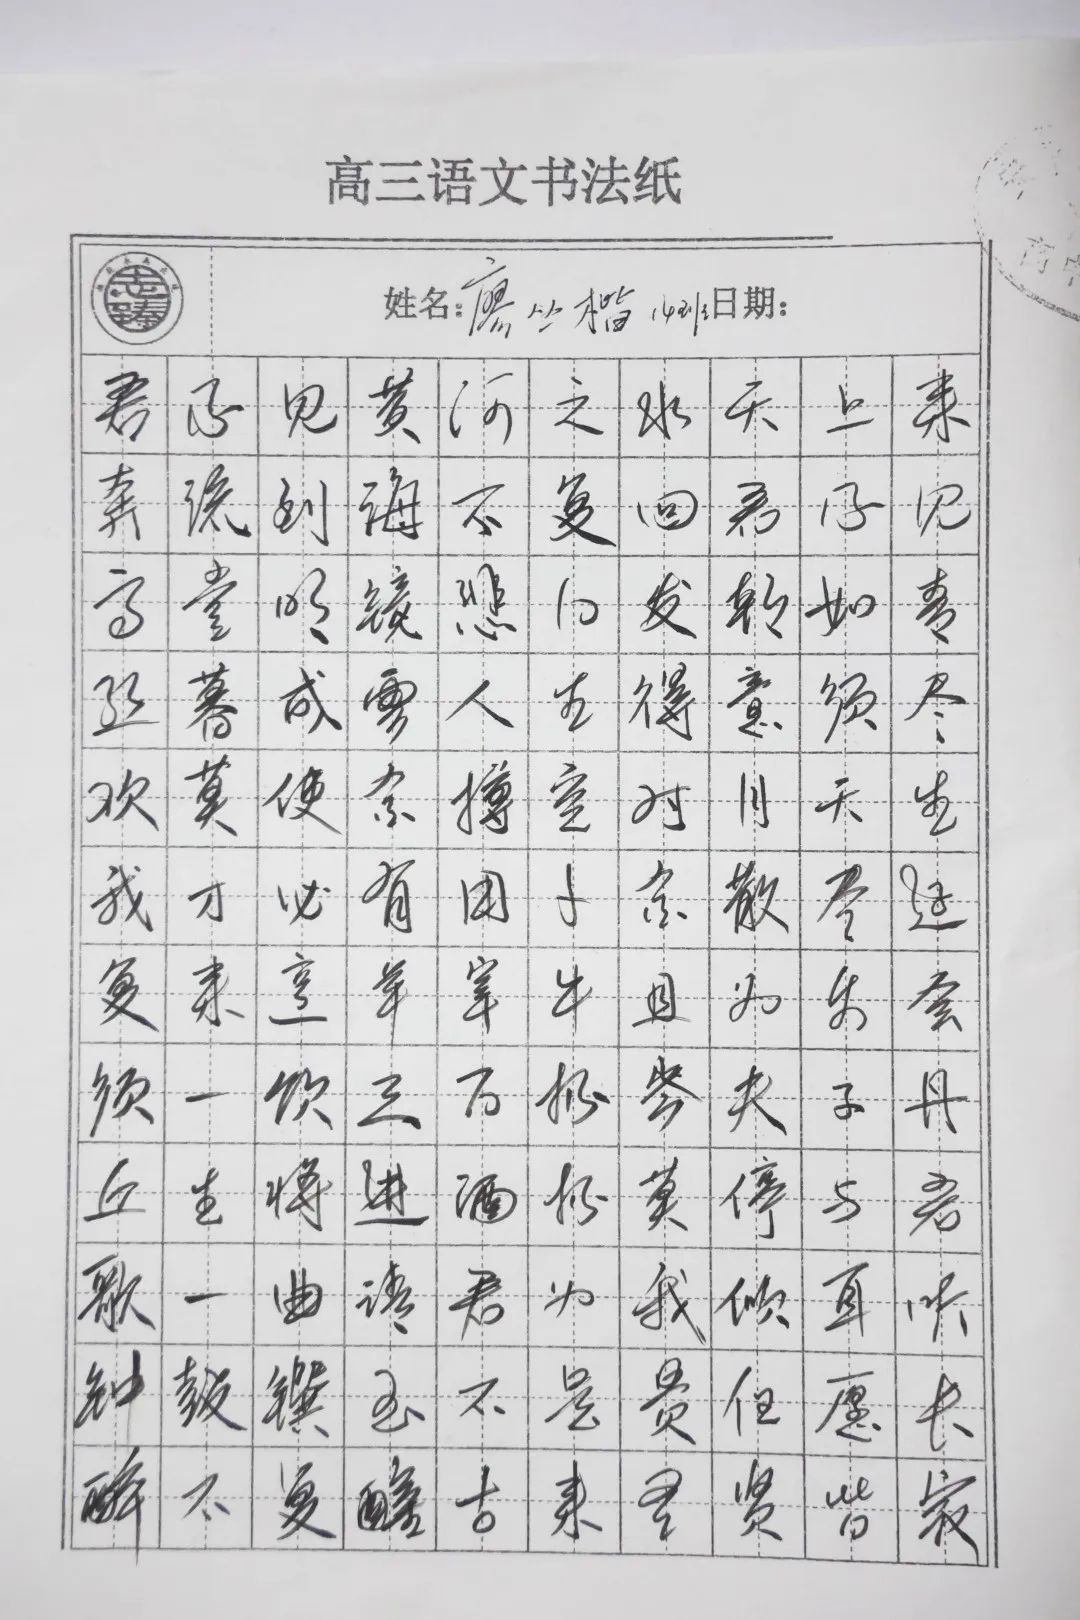 高三语文书法纸
姓名：廖 楷 14班 日期：
君不见黄河之水天上来
奔流到海不复回君不见
高堂明镜悲白发朝如青
丝暮成雪人生得意须尽
欢莫使金樽空对月天生
我才必有用千金散尽还
复来烹羊宰牛且为乐会
须一饮三百杯岑夫子丹
丘生将进酒杯莫停与君
歌一曲请君为我倾耳听
钟鼓馔玉不足贵但愿长
醉不复醒古来圣贤皆寂